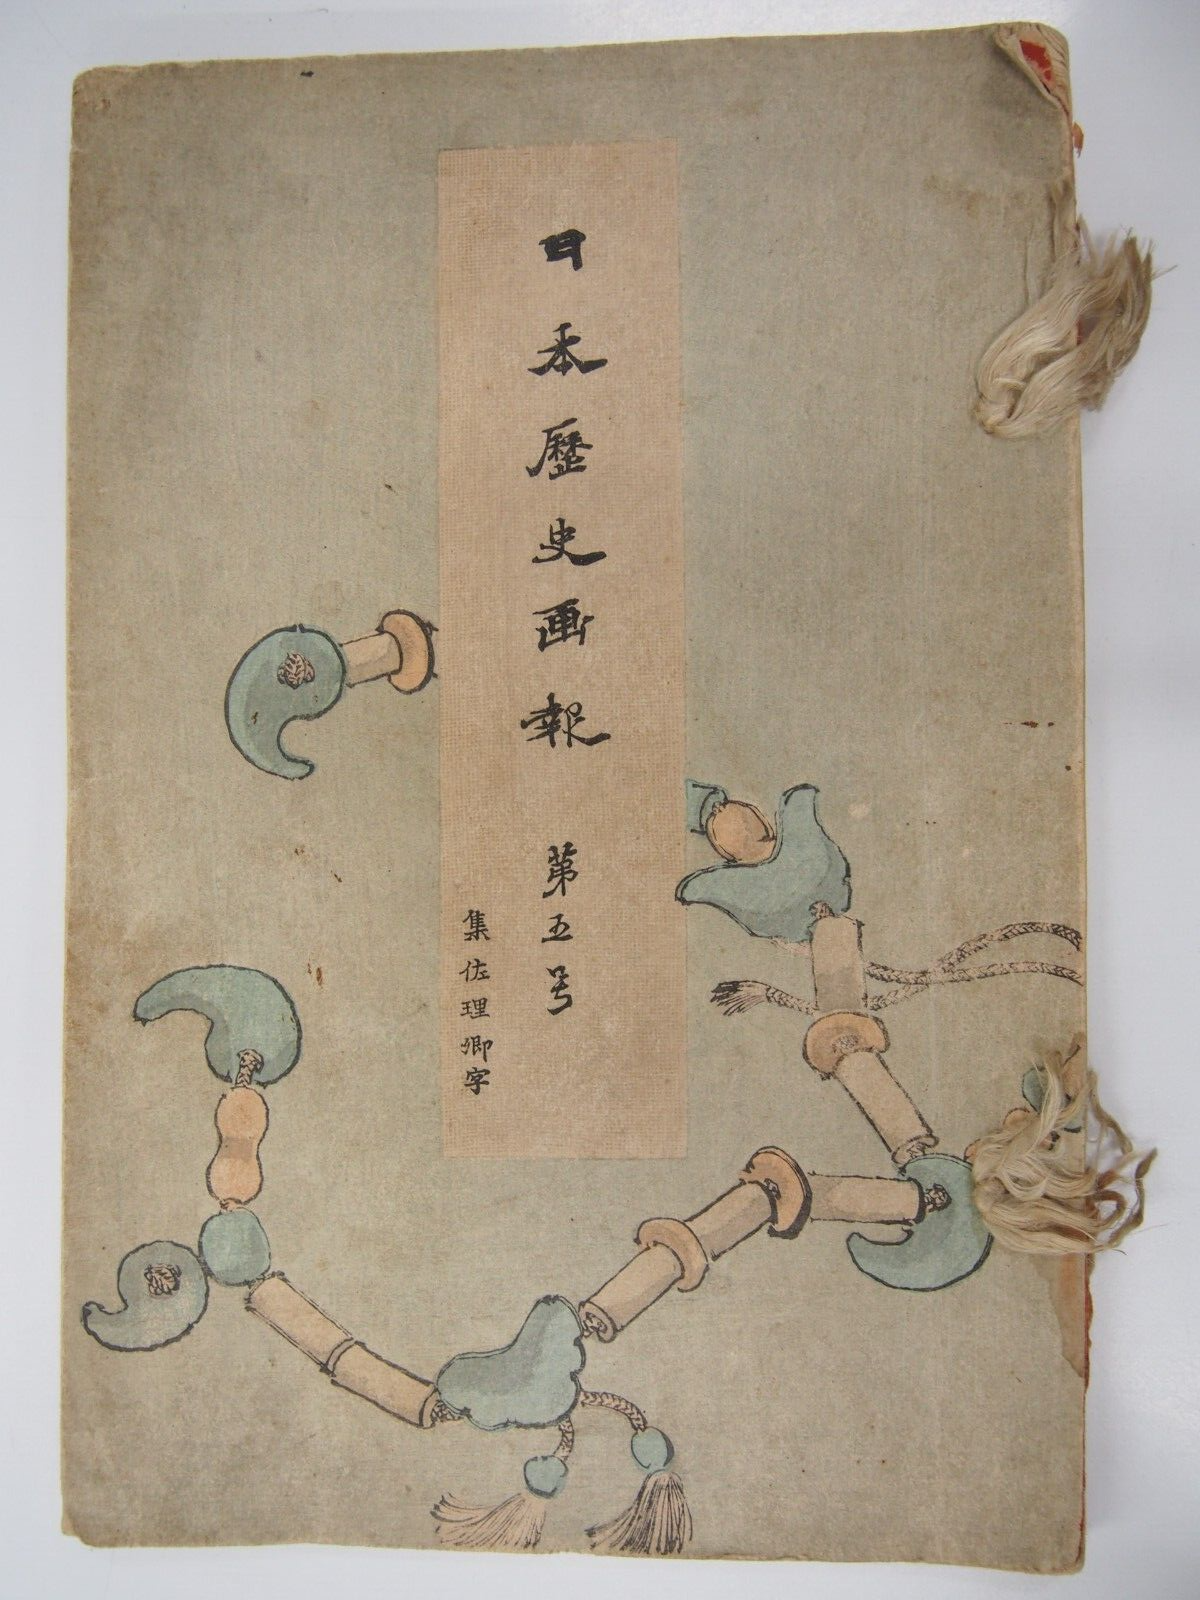 日本歴史画報 第五号
集佐理卿字